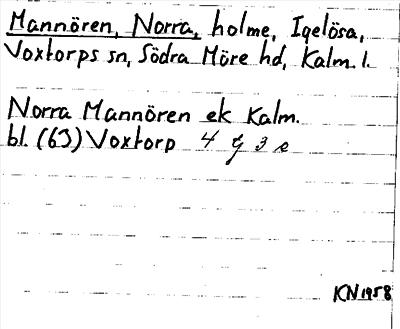 Mannören, Norra, holme, Igelösa,
Voxtorps sn, Södra Möre hd, Kalm. l.
Norra Mannören ek Kalm.
bl. (63) Voxtorp 4 G 3 e
KN 1958